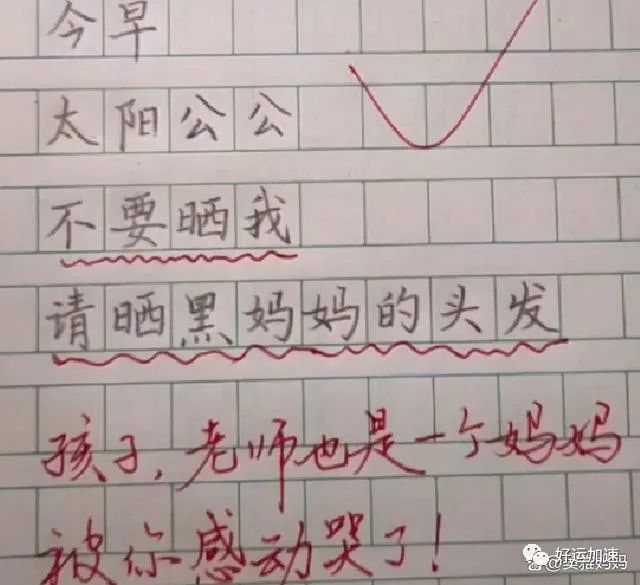 今早
太阳公公
不要晒我
请晒黑妈妈的头发
孩子,老师也是一个妈妈
被你感动哭了!
好运加速